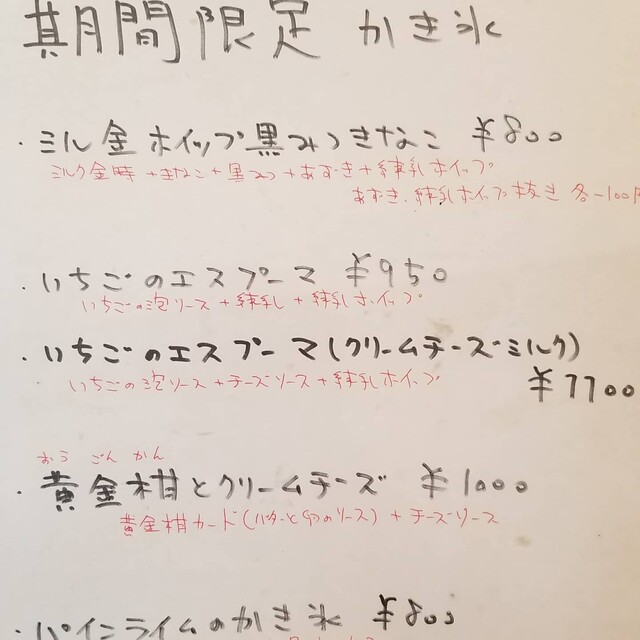 期間限定 かき氷
・ミル金ホイップ黒みつきなこ ¥800
ミルク金時+きなこ+黒みつ+あずき+練乳ホイップ
あずき、練乳ホイップ抜き 各-100円
・いちごのエスプーマ ¥950
いちごの泡ソース+練乳+練乳ホイップ
・いちごのエスプーマ(クリームチーズミルク)
いちごの泡ソース+チーズソース+練乳ホイップ
¥1100
おう ごん かん
・黄金柑とクリームチーズ ¥1000
黄金柑カード(バターと卵のソース)+チーズソース
・パインライムのかき氷 ¥800